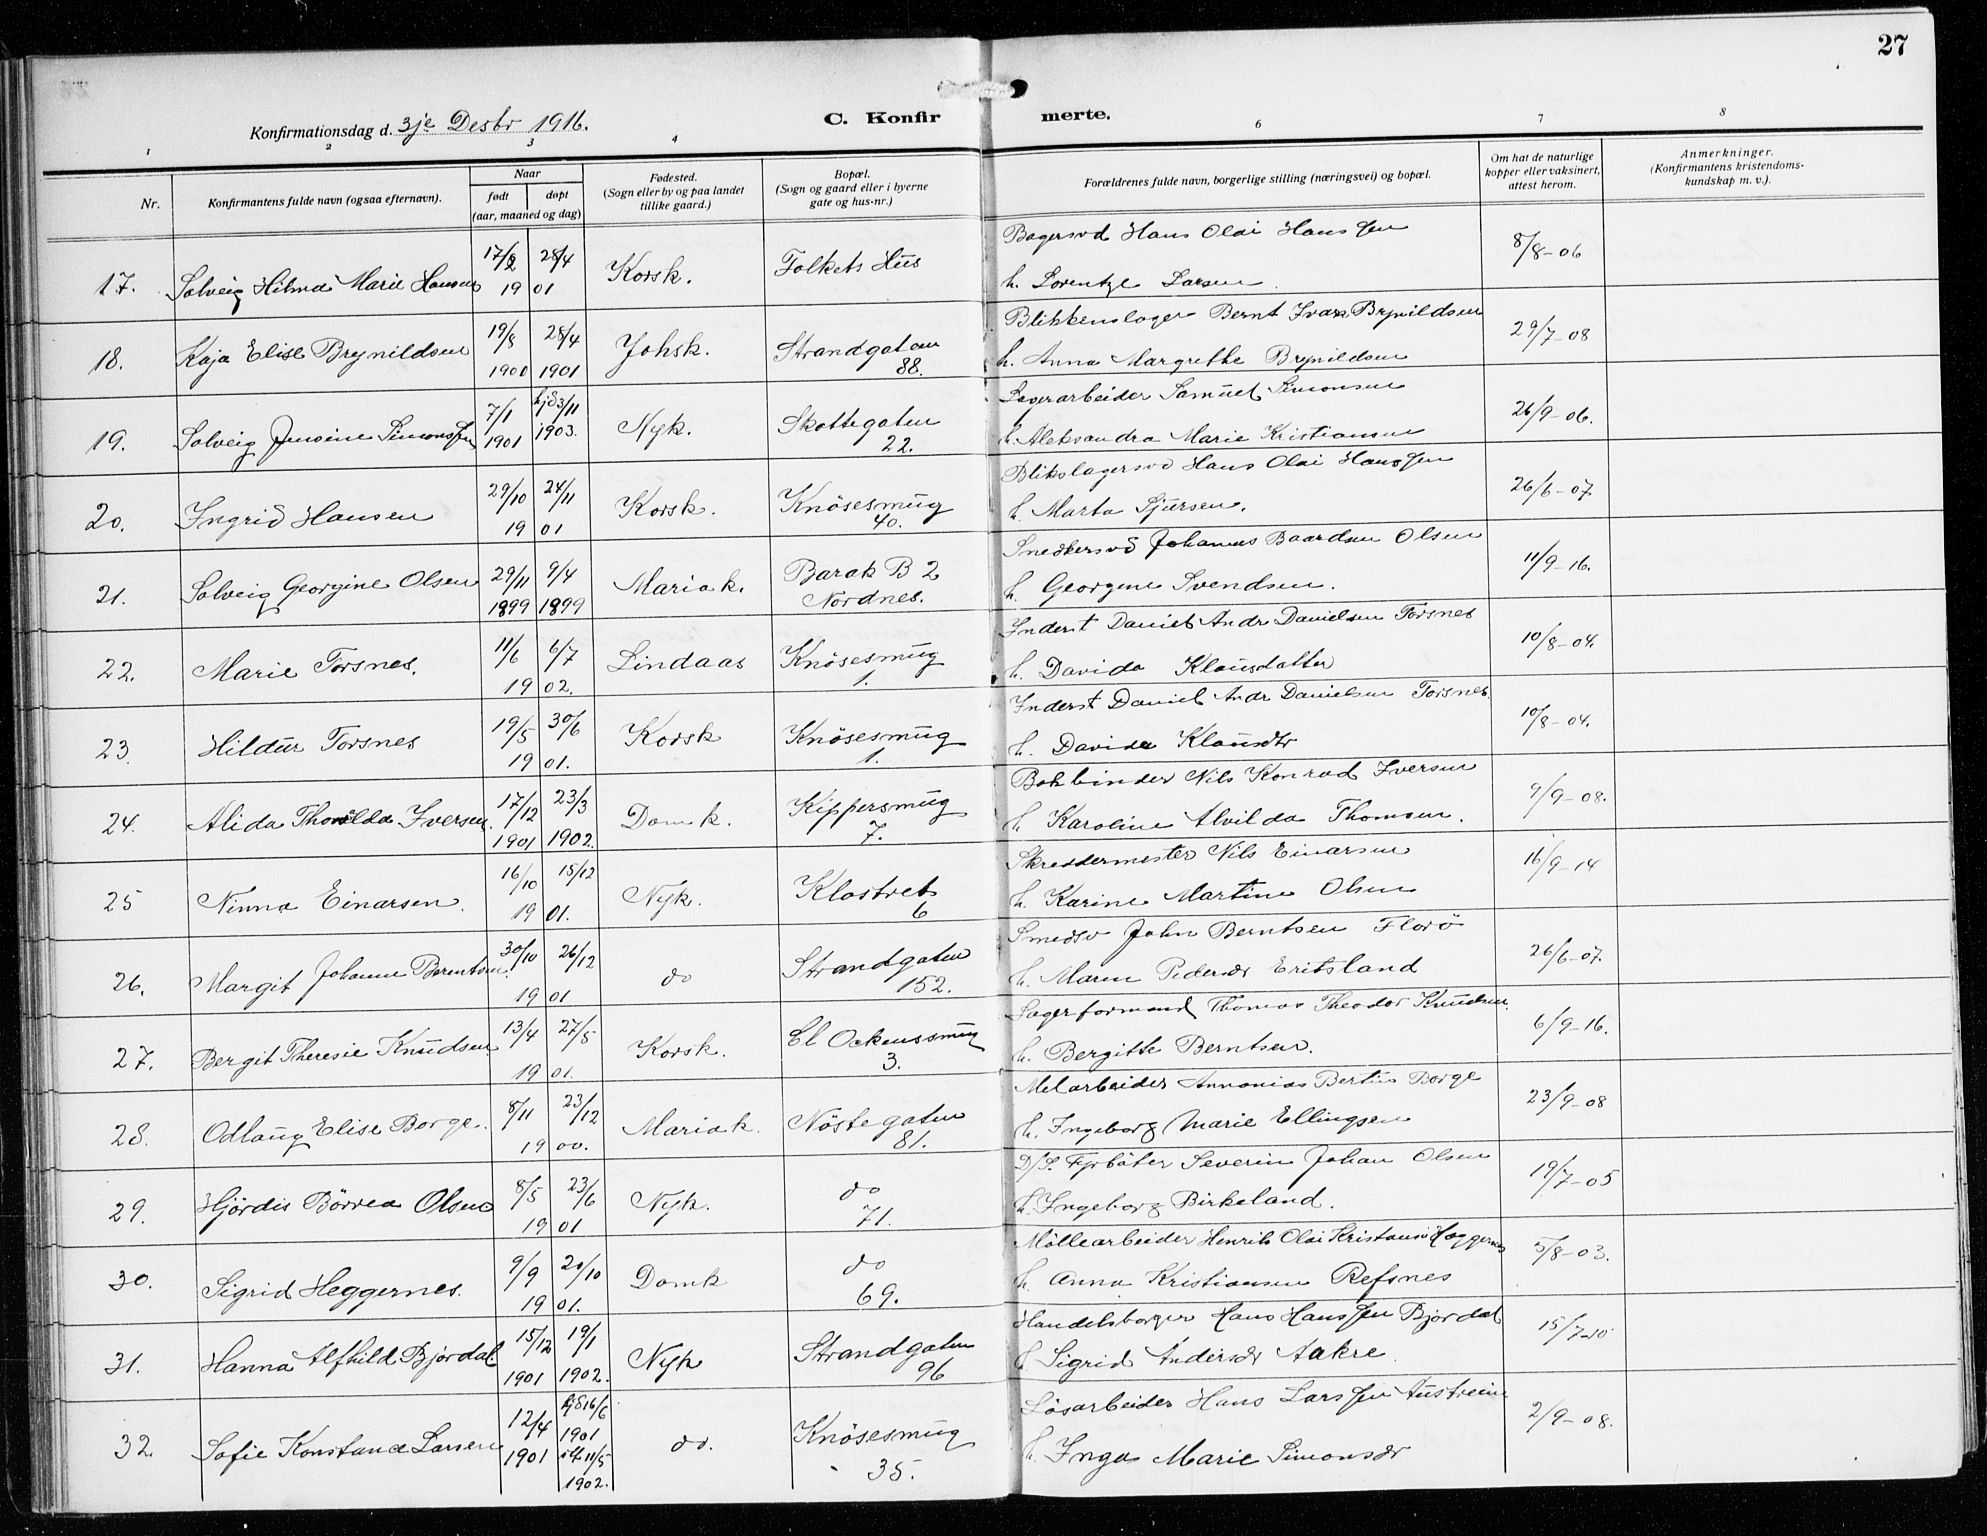 27
Konfirmationsdag d. 3je Desbr 1916.
C. Konfirmerte.
1 2 3 4 6 7 8
Nr. | Konfirmantens fulde navn (ogsaa efternavn). | Naar født døpt (aar, maaned og dag) | Fødested. (Sogn eller by og paa landet tillike gaard.) | Bopæl. (Sogn og gaard eller i byerne gate og hus-nr.) | Forældrenes fulde navn, borgerlige stilling (næringsvei) og bopæl. | Om hat de naturlige kopper eller vaksinert, attest herom. | Anmerkninger. (Konfirmantens kristendoms-kundskap m. v.).
17. Solveig Hilma Marie Hansen 17/2 28/4 1901 Korsk. Folkets Hus Bagersvd Hans Olai Hanssen 8/8-06
h. Lorentze Larsen.
18. Kaja Elise Brynildsen 19/8 1900 28/4 1901 Johsk. Strandgaten 88. Blikkenslager Bernt Ivar Brynildsen 29/7-08
h. Anna Margrethe Brynildsen
19. Solveig Jensine Simonsen 7/1 1901 hjd 3/11 1903. Nyk. Skottegaten 22. Lagerarbeider Samuel Simonsen 26/9-06.
h. Aleksandra Marie Kristiansen
20. Ingrid Hansen 29/10 24/11 1901 Korsk. Knösesmug 40. Blikslagersvd Hans Olai Hanssen 26/6-07
h. Marta Sjursen.
21. Solveig Georgine Olsen 29/11 1899 9/4 1899 Mariak. Barak B 2 Nordnes. Snedkersvd Johannes Baardsen Olsen 11/9-16.
h. Georgine Svendsen.
22. Marie Torsnes. 11/6 6/7 1902. Lindaas Knösesmug 1. Inderst Daniel Andr Danielsen Torsnes 10/8-04.
h. Davida Klausdatter
23. Hildur Torsnes 19/5 30/6 1901. Korsk Knösesmug 1. Inderst Daniel Andr Danielsen Torsnes. 10/8-04.
h. Davida Klausdtr
24. Alida Thovilda Iversen. 17/12 1901 23/3 1902. Domk. Kippersmug 7. Bokbinder Nils Konrad Iversen 9/9-08.
h. Karoline Alvilda Thomsen.
25 Ninna Einarsen. 16/10 15/12 1901. Nyk. Klostret 6 Skreddermester Nils Einarsen 16/9-14
h. Karine Martine Olsen
26. Margit Johanne Berentsen. 30/10 26/12 1901 do Strandgaten 152. Smedsv John Berntsen Florö 26/6-07.
h. Maren Pedersdr Eritsland
27. Bergit Theresie Knudsen 13/4 27/5 1901. Korsk. El Ockenssmug 3. Lagerformand Thomas Theodor Knudsen. 6/9-16.
h. Bergitte Berntsen.
28. Odlaug Elise Borge. 8/11 23/12 1900. Mariak. Nöstegaten 81. Melarbeider Annanias Bertin Borge 23/9-08
h. Ingeborg Marie Ellingsen
29. Hjördis Börrea Olsen 8/5 23/6 1901 Nyk. do 71. D/S. Fyrböter Severin Johan Olsen 19/7-05
h. Ingeborg Birkeland.
30. Sigrid Heggernes. 9/9 20/10 1901. Domk do 69. Möllearbeider Henrik Olai Kristiansen Heggernes 5/8-03.
h. Anna Kristiansen Refsnes
31. Hanna Alfhild Bjordal 15/12 1901 19/1 1902. Nyk Strandgaten 96 Handelsborger Hans Hanssen Bjordal 15/7-10
h. Sigrid Andersdr Aakre.
32. Sofie Konstance Larsen 12/4 1901 hjd 16/6 1901 11/5 1902. do. Knösesmug 35. Lösarbeider Hans Larssen Austreim 2/9-08.
h. Inga Marie Simonsdr